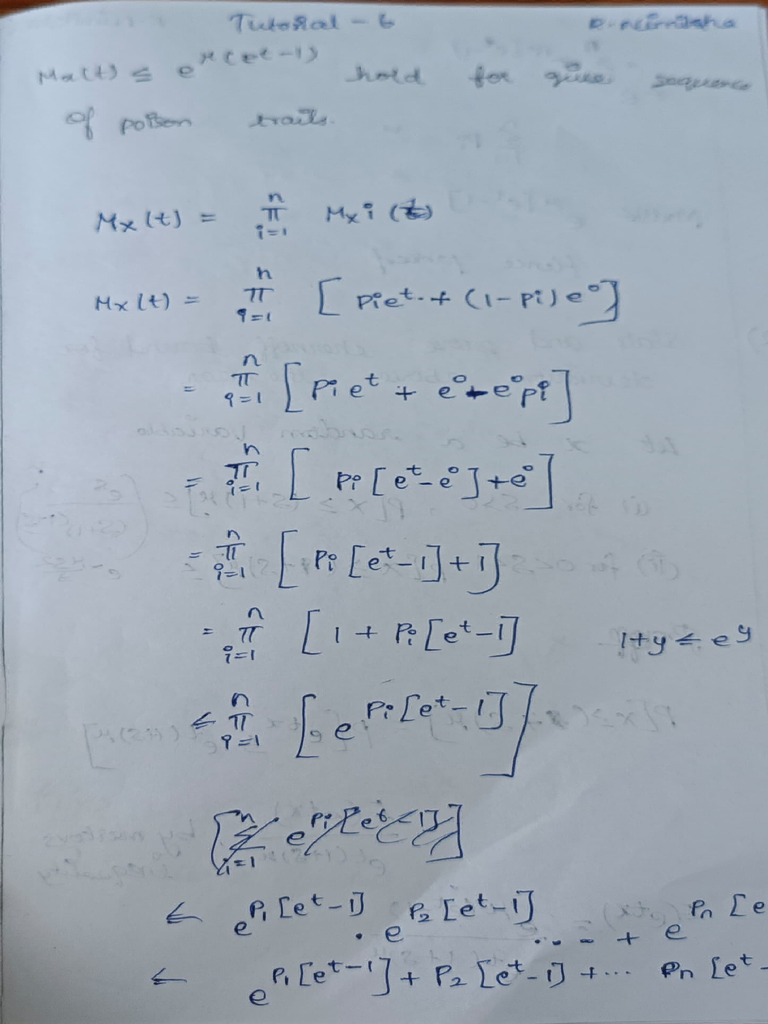 Tutorial - 6 R. nimisha
Mx(t) ≤ e^μ(e^t-1) hold for give sequence
of poison trails.
Mx(t) = n π i=1 Mxi(t)
Mx(t) = n π i=1 [pie^t + (1-pi)e^0]
= n π i=1 [pi e^t + e^0 - e^0pi]
= n π i=1 [pi[e^t-e^0]+e^0]
= n π i=1 [pi[e^t-1]+1]
= n π i=1 [1 + pi[e^t-1] 1+y ≤ e^y
≤ n π i=1 [e^pi[e^t-1]]
≤ e^p1[e^t-1] . e^p2[e^t-1] ... + e^pn[e
≤ e^p1[e^t-1] + p2[e^t-1] + ... pn[e^t-